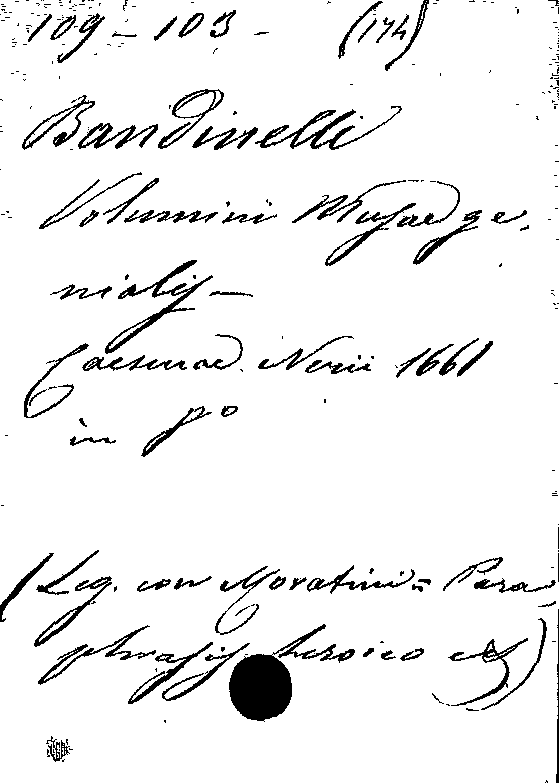 109 - 103 - (174)
Bandinelli
Volumini Musae ge-
nialis -
Caesenae Nerii 1661
in 8°
(Leg. con Moratini = Para-
phrasis heroico